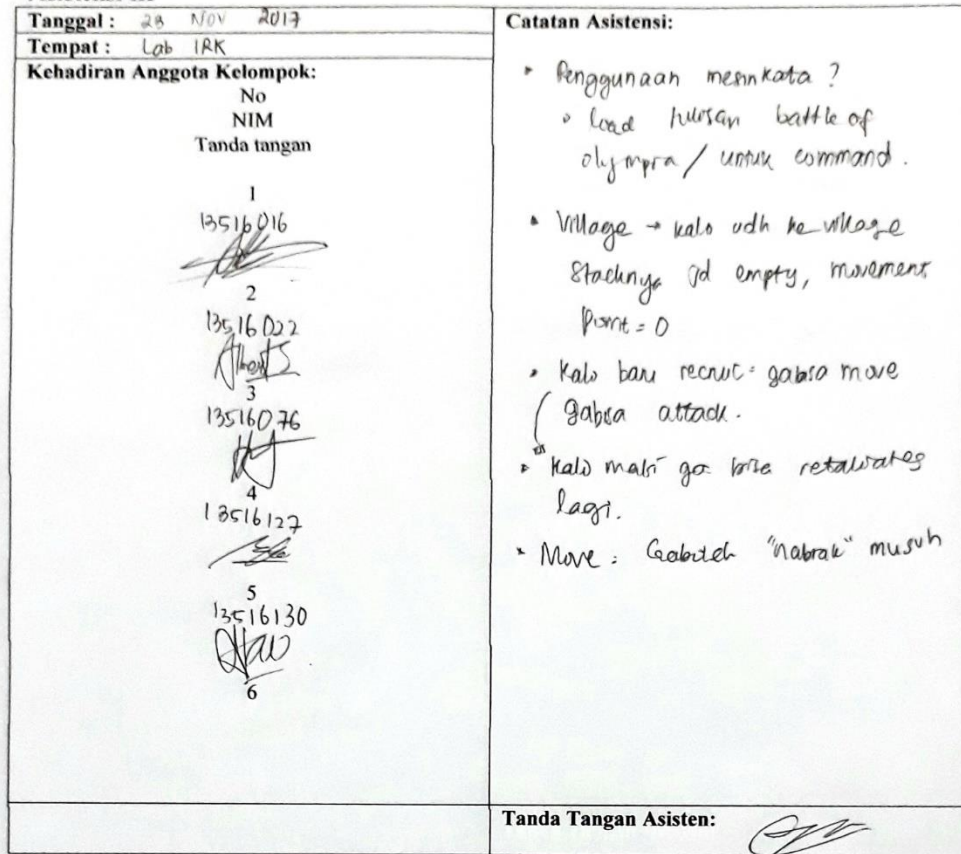 Tanggal : 28 NOV 2017
Tempat : Lab IRK
Kehadiran Anggota Kelompok:
No
NIM
Tanda tangan
1
13516016
2
13516022
3
13516076
4
13516127
5
13516130
6
Catatan Asistensi:
• Penggunaan mesinkata ?
• load tulisan battle of
olympia / untuk command.
• Village → kalo udh ke village
stacknya jd empty, movement
point = 0
• Kalo baru recruit = gabisa move
gabisa attack.
• Kalo mati ga bisa retaliates
lagi.
• Move : Gaboleh "nabrak" musuh
Tanda Tangan Asisten: